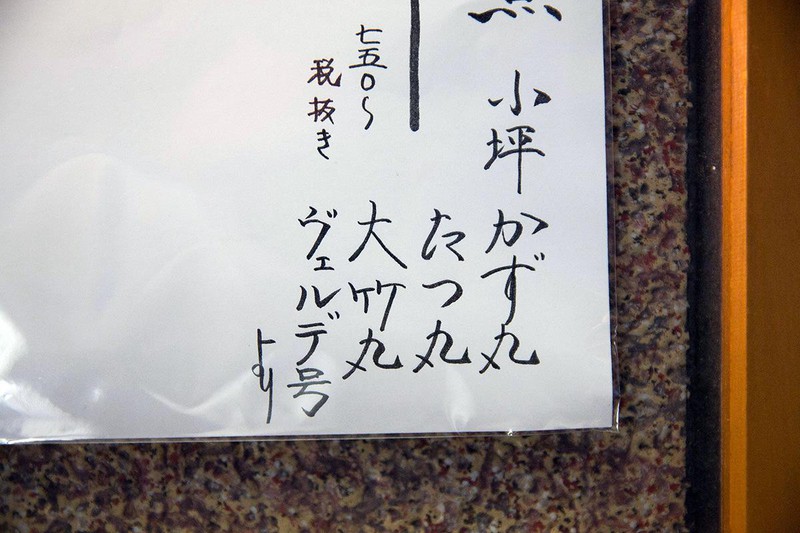 小坪 かず丸
たつ丸
七五〇〜
大竹丸
税抜き
ヴェルデ号
より